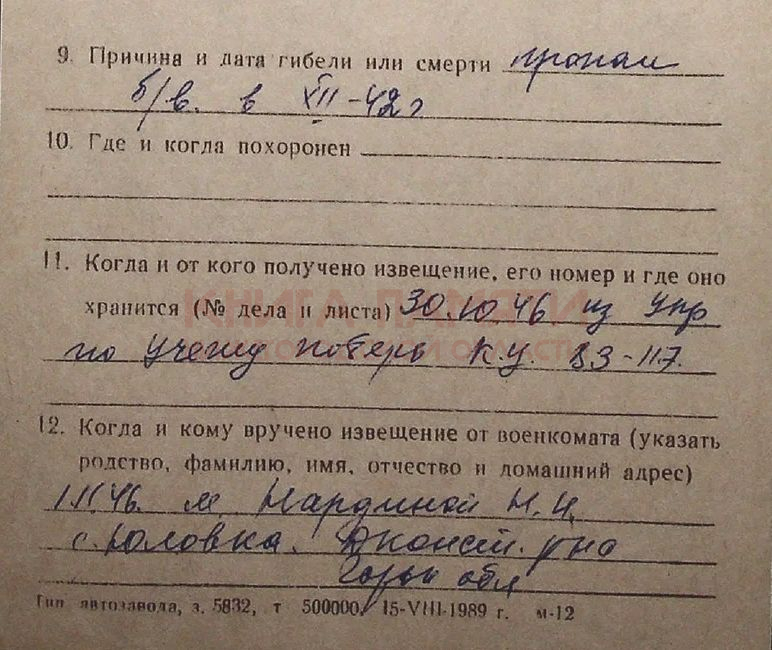 9. Причина и дата гибели или смерти пропал
б/в. в XII-42 г
10. Где и когда похоронен
11. Когда и от кого получено извещение, его номер и где оно
хранится (№ дела и листа) 30.10.46 из Упр
по учету потерь К.У. 83-117.
12. Когда и кому вручено извещение от военкомата (указать
родство, фамилию, имя, отчество и домашний адрес)
1.11.46. м
с. Дконст. рна
Горьк обл
Тип автозавода, з. 5832, т 500000, 15-VIII-1989 г. м-12